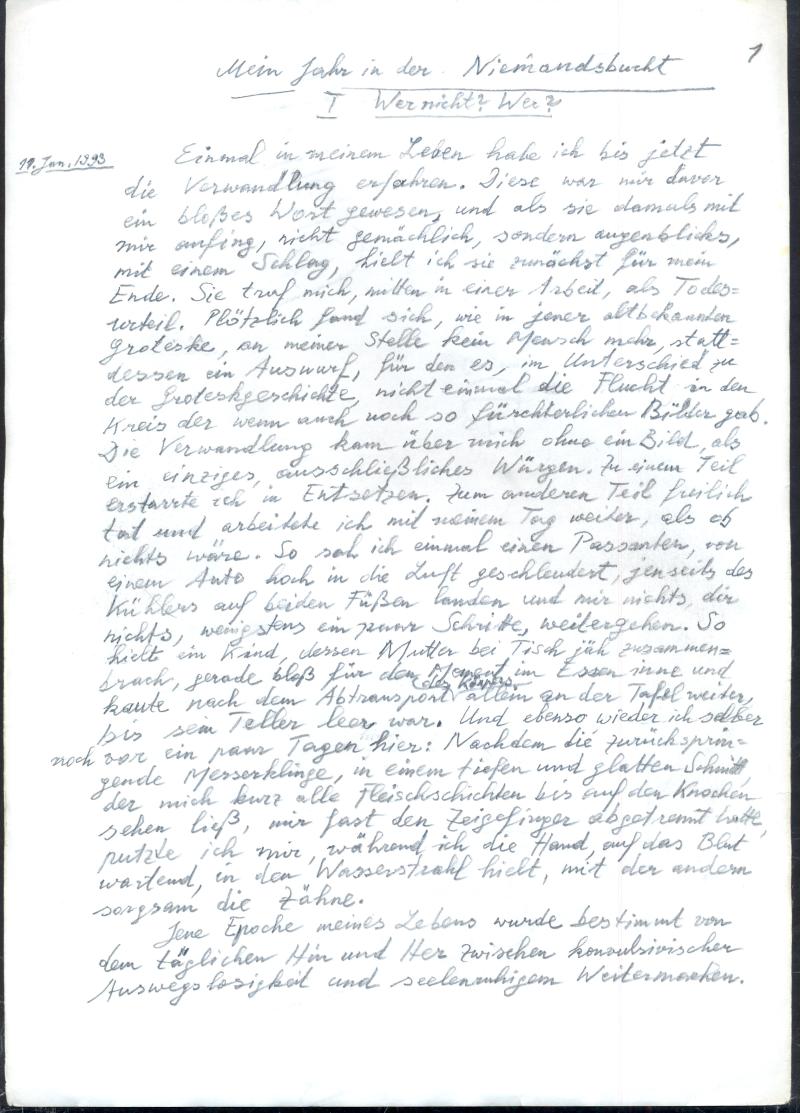 1
Mein Jahr in der Niemandsbucht
I Wer nicht? Wer?
11. Jan. 1993
Einmal in meinem Leben habe ich bis jetzt
die Verwandlung erfahren. Diese war mir davor
ein bloßes Wort gewesen, und als sie damals mit
mir anfing, nicht gemächlich, sondern augenblicks,
mit einem Schlag, hielt ich sie zunächst für mein
Ende. Sie traf mich, mitten in einer Arbeit, als Todes=
urteil. Plötzlich fand sich, wie in jener altbekannten
Groteske, an meiner Stelle kein Mensch mehr, statt=
dessen ein Auswurf, für den es, im Unterschied zu
der Groteskgeschichte, nicht einmal die Flucht in den
Kreis der wenn auch noch so fürchterlichen Bilder gab.
Die Verwandlung kam über mich ohne ein Bild, als
ein einziges, ausschließliches Würgen. Zu einem Teil
erstarrte ich in Entsetzen. Zum anderen Teil freilich
tat und arbeitete ich mit meinem Tag weiter, als ob
nichts wäre. So sah ich einmal einen Passanten, von
einem Auto hoch in die Luft geschleudert, jenseits des
Kühlers auf beiden Füßen landen und mir nichts, dir
nichts, wenigstens ein paar Schritte, weitergehen. So
hielt ein Kind, dessen Mutter bei Tisch jäh zusammen=
brach, gerade bloß für den Moment im Essen inne und
kaute nach dem Abtransport des Körpers allein an der Tafel weiter,
bis sein Teller leer war. Und ebenso wieder ich selber
noch vor ein paar Tagen hier: Nachdem die zurücksprin=
gende Messerklinge, in einem tiefen und glatten Schnitt
der mich kurz alle Fleischschichten bis auf den Knochen
sehen ließ, mir fast den Zeigefinger abgetrennt hatte,
putzte ich mir, während ich die Hand, auf das Blut
wartend, in den Wasserstrahl hielt, mit der andern
sorgsam die Zähne.
Jene Epoche meines Lebens wurde bestimmt von
dem täglichen Hin und Her zwischen konvulsivischer
Auswegslosigkeit und seelenruhigem Weitermachen.